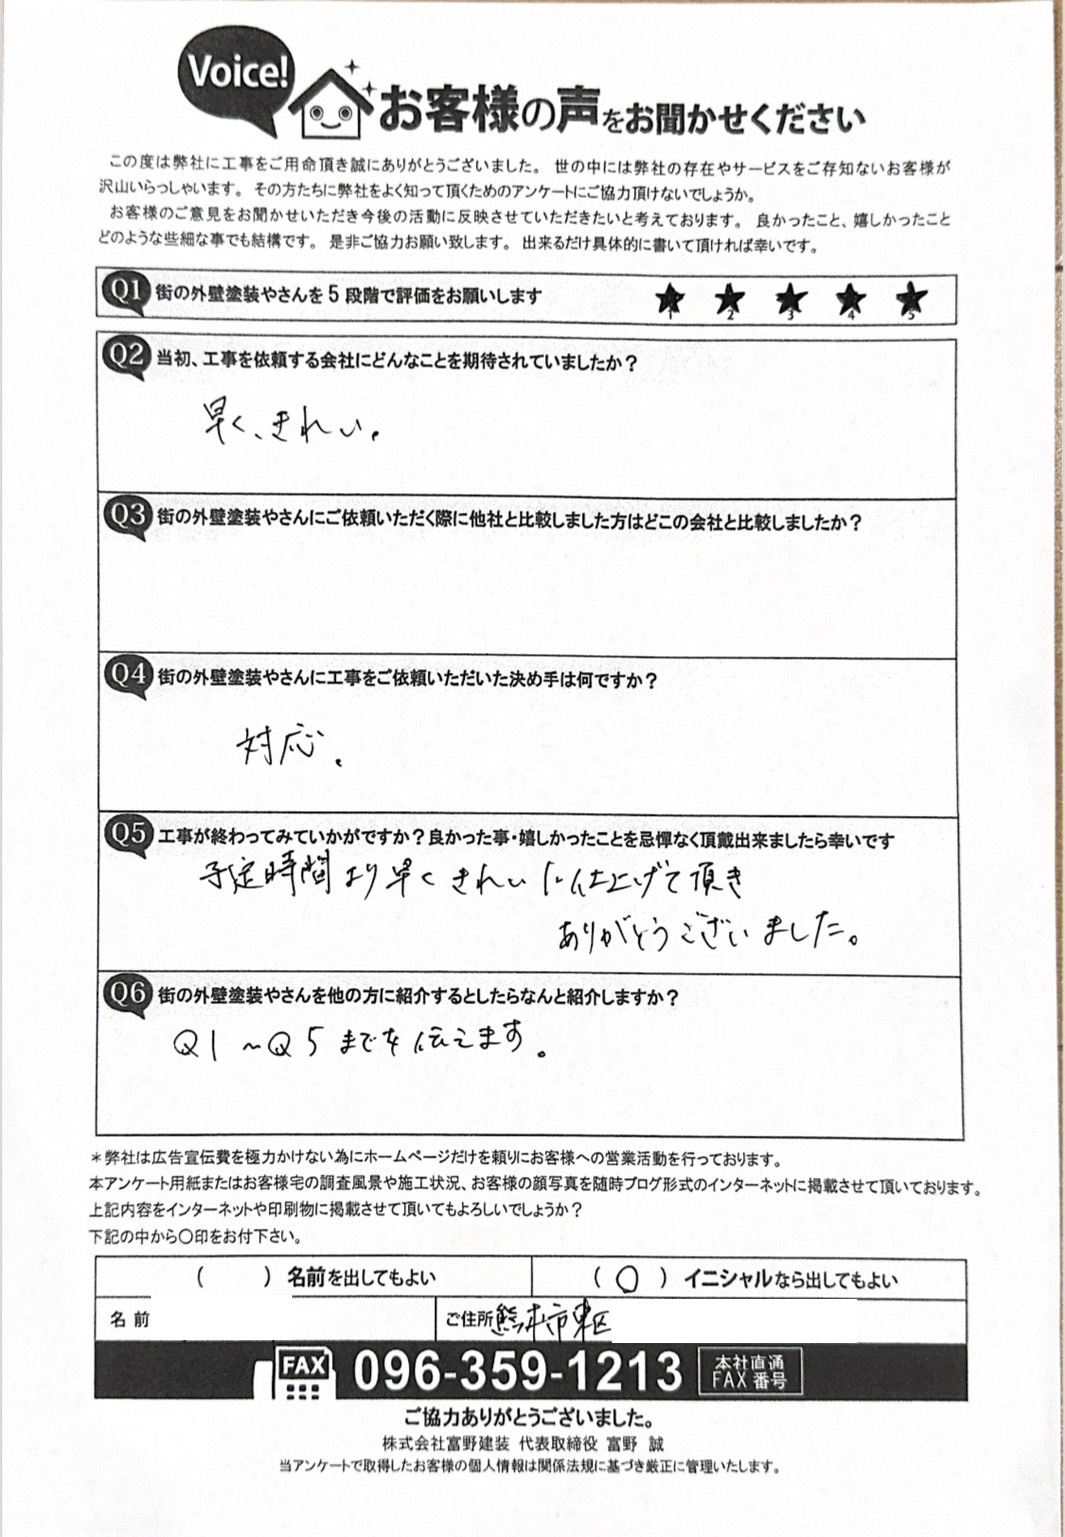 Voice!
お客様の声をお聞かせください
この度は弊社に工事をご用命頂き誠にありがとうございました。 世の中には弊社の存在やサービスをご存知ないお客様が
沢山いらっしゃいます。 その方たちに弊社をよく知って頂くためのアンケートにご協力頂けないでしょうか。
お客様のご意見をお聞かせいただき今後の活動に反映させていただきたいと考えております。 良かったこと、嬉しかったこと
どのような些細な事でも結構です。 是非ご協力お願い致します。 出来るだけ具体的に書いて頂ければ幸いです。
Q1 街の外壁塗装やさんを5段階で評価をお願いします ★ ★ ★ ★ ★
1 2 3 4 5
Q2 当初、工事を依頼する会社にどんなことを期待されていましたか?
早く、きれい。
Q3 街の外壁塗装やさんにご依頼いただく際に他社と比較しました方はどこの会社と比較しましたか?
Q4 街の外壁塗装やさんに工事をご依頼いただいた決め手は何ですか?
対応。
Q5 工事が終わってみていかがですか?良かった事・嬉しかったことを忌憚なく頂戴出来ましたら幸いです
予定時間より早くきれいに仕上げて頂き
ありがとうございました。
Q6 街の外壁塗装やさんを他の方に紹介するとしたらなんと紹介しますか?
Q1~Q5までを伝えます。
*弊社は広告宣伝費を極力かけない為にホームページだけを頼りにお客様への営業活動を行っております。
本アンケート用紙またはお客様宅の調査風景や施工状況、お客様の顔写真を随時ブログ形式のインターネットに掲載させて頂いております。
上記内容をインターネットや印刷物に掲載させて頂いてもよろしいでしょうか?
下記の中から〇印をお付下さい。
( ) 名前を出してもよい (〇) イニシャルなら出してもよい
名前 ご住所 熊本市東区
FAX 096-359-1213 本社直通
FAX番号
ご協力ありがとうございました。
株式会社富野建装 代表取締役 富野 誠
当アンケートで取得したお客様の個人情報は関係法規に基づき厳正に管理いたします。